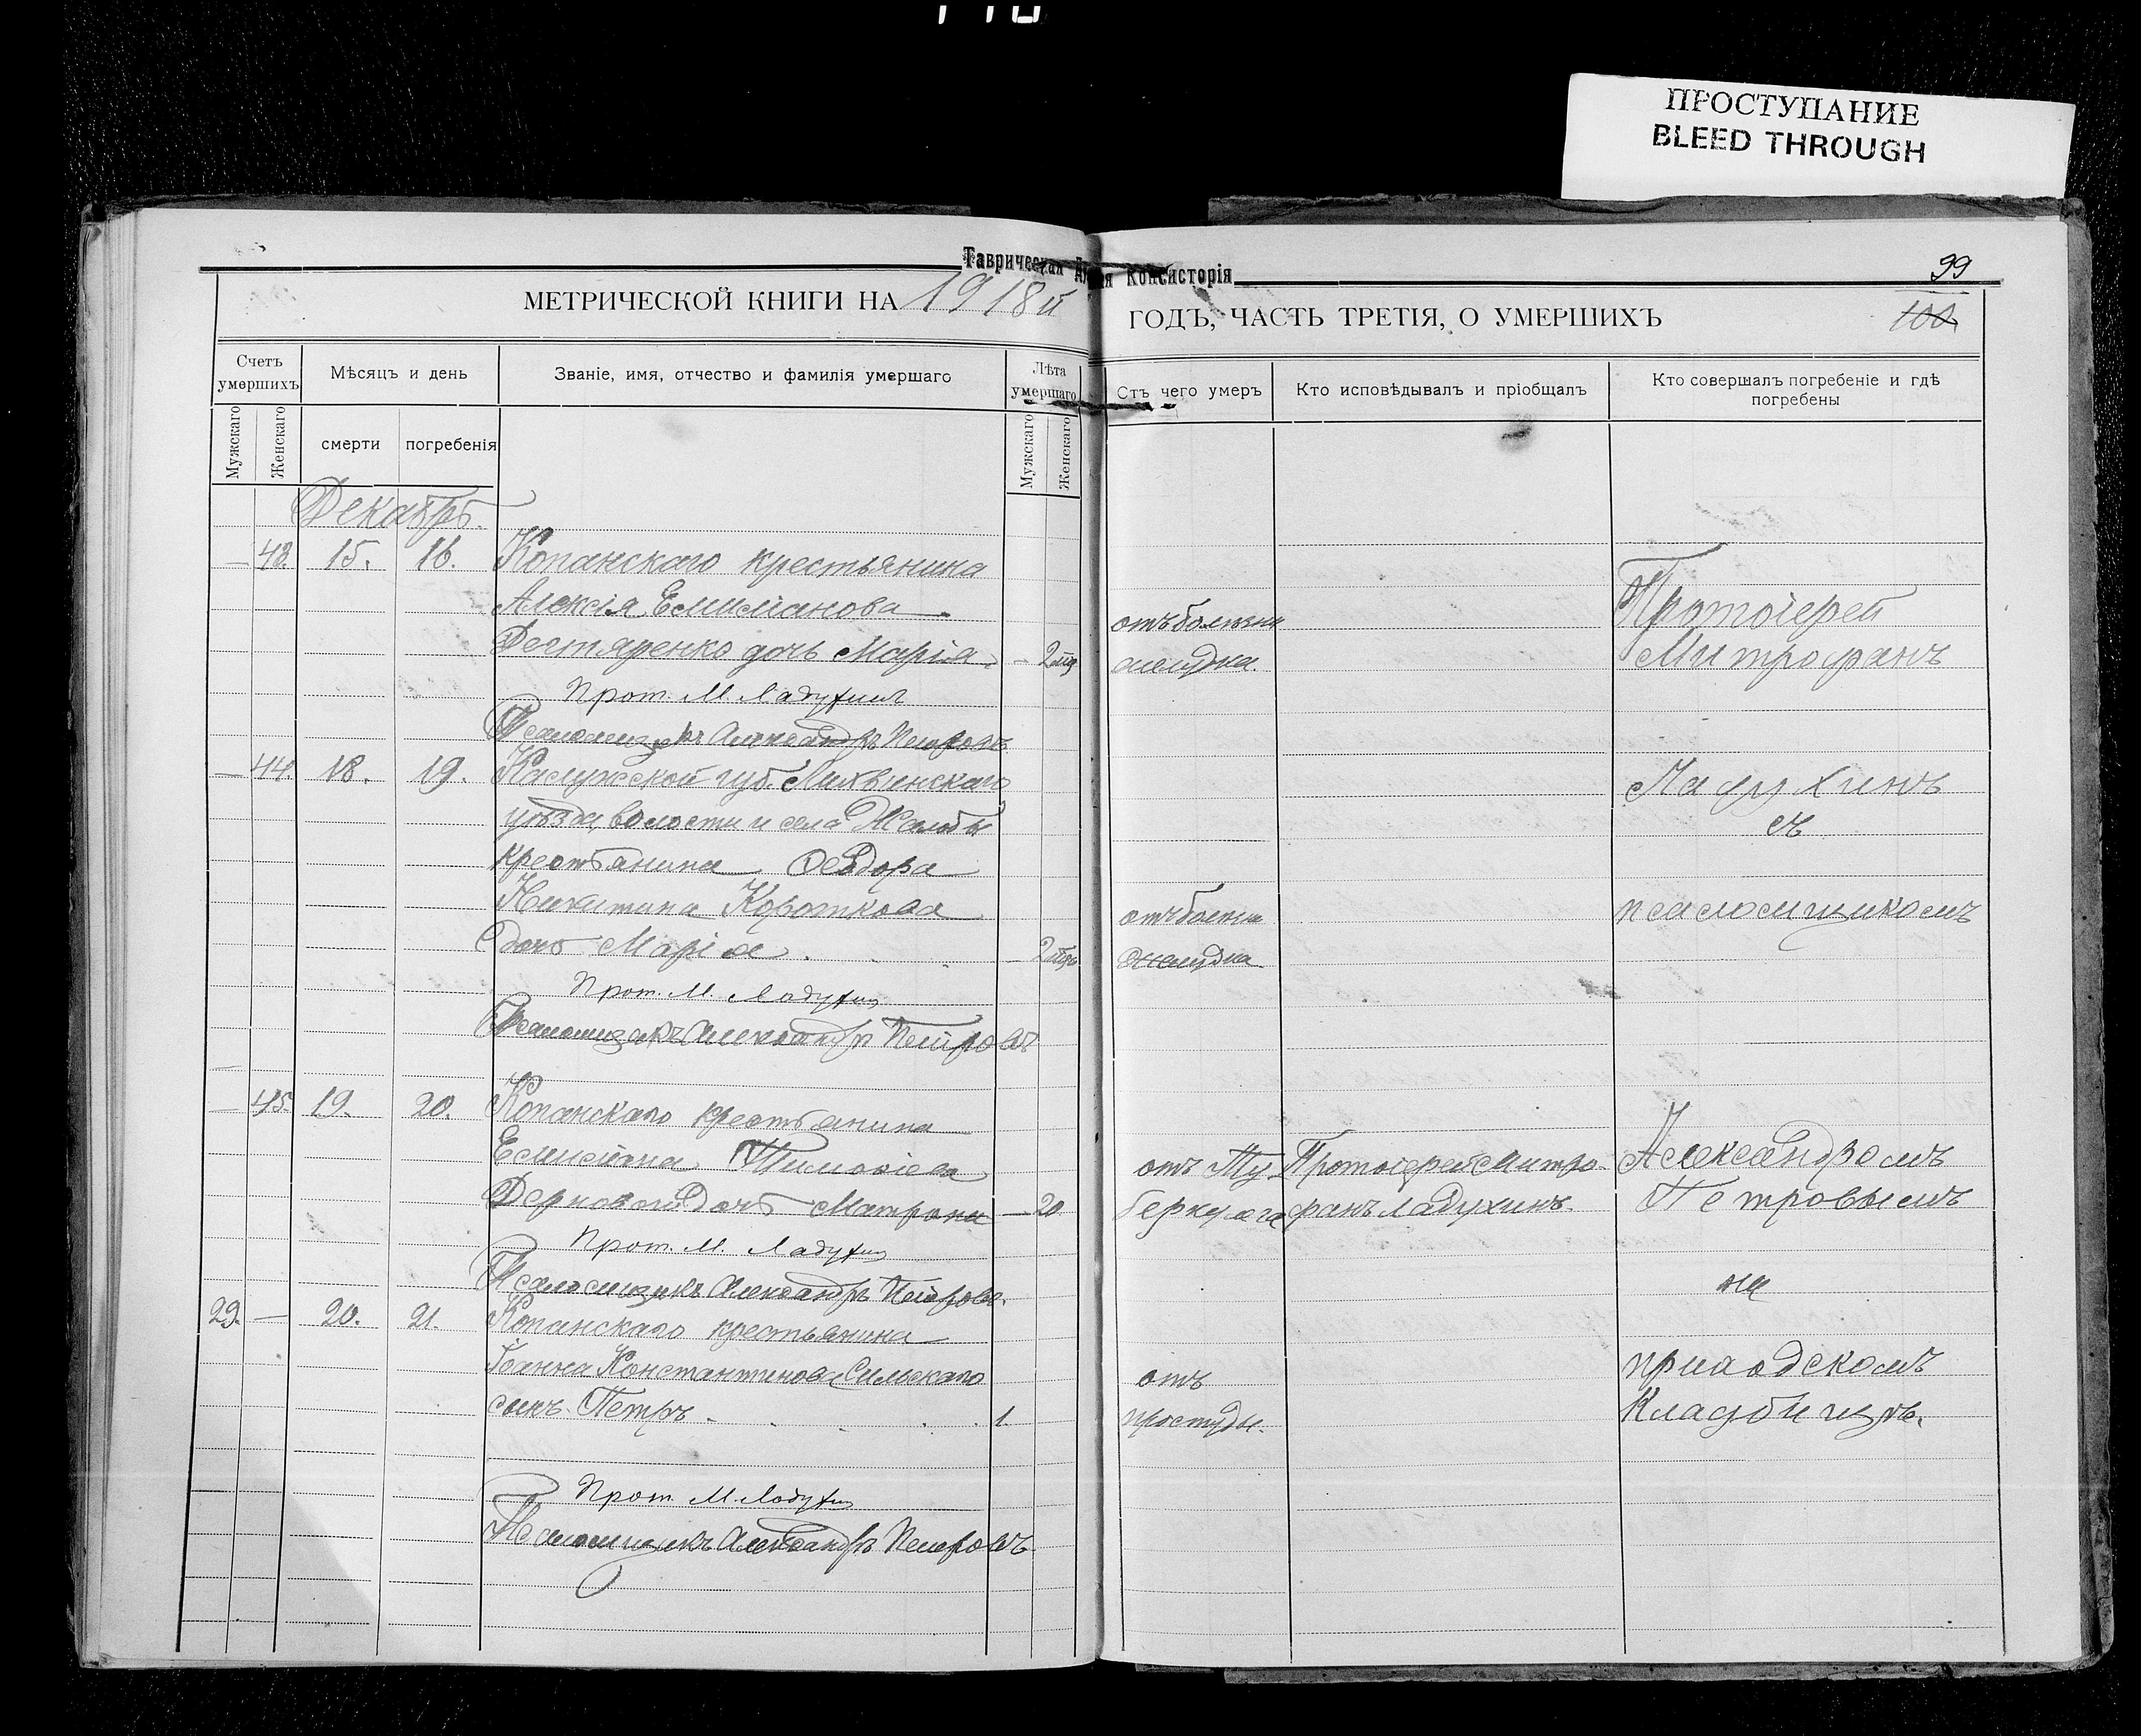 ПРОСТУПАНИЕ
BLEED THROUGH
Таврическая Консисторія
99
100
МЕТРИЧЕСКОЙ КНИГИ НА 1918й
ГОДЪ, ЧАСТЬ ТРЕТІЯ, О УМЕРШИХЪ
Счетъ умершихъ
Мѣсяцъ и день
Званіе, имя, отчество и фамилія умершаго
Лѣта умершаго
Отъ чего умеръ
Кто исповѣдывалъ и пріобщалъ
Кто совершалъ погребеніе и гдѣ погребены
Мужскаго
Женскаго
смерти
погребенія
Мужскаго
Женскаго
Декабрь.
— 43. 15. 16. Копанскаго крестьянина
Алексія Емиліанова
дочь Марія. — 2
отъ болѣзни
желудка.
Прот. М. Ладухинъ
Псаломщикъ Александръ Петровъ
— 44. 18. 19. Калужской губ. Лихвинскаго
уѣзда, волости и села
крестьянина Ѳеодора
Никитина Короткова
дочь Марія. — 2
отъ болѣзни
желудка
Прот. М. Ладухин
Псаломщикъ Александръ Петровъ
— 45. 19. 20. Копанскаго крестьянина
Емиліана Тимоѳіева
дочь Матрона — 20.
отъ Ту
беркулеза
Протоіерей Митро-
фанъ Ладухинъ.
Прот. М. Ладухин
Псаломщикъ Александръ Петровъ.
29. — 20. 21. Копанскаго крестьянина
Іоанна Константинова Сильскаго
сынъ Петръ. 1.
отъ
простуды.
Прот. М. Ладухин
Псаломщикъ Александръ Петровъ.
Протоіерей
Митрофанъ
Ладухинъ
съ
псаломщикомъ
Александромъ
Петровымъ
на
приходскомъ
кладбищѣ.